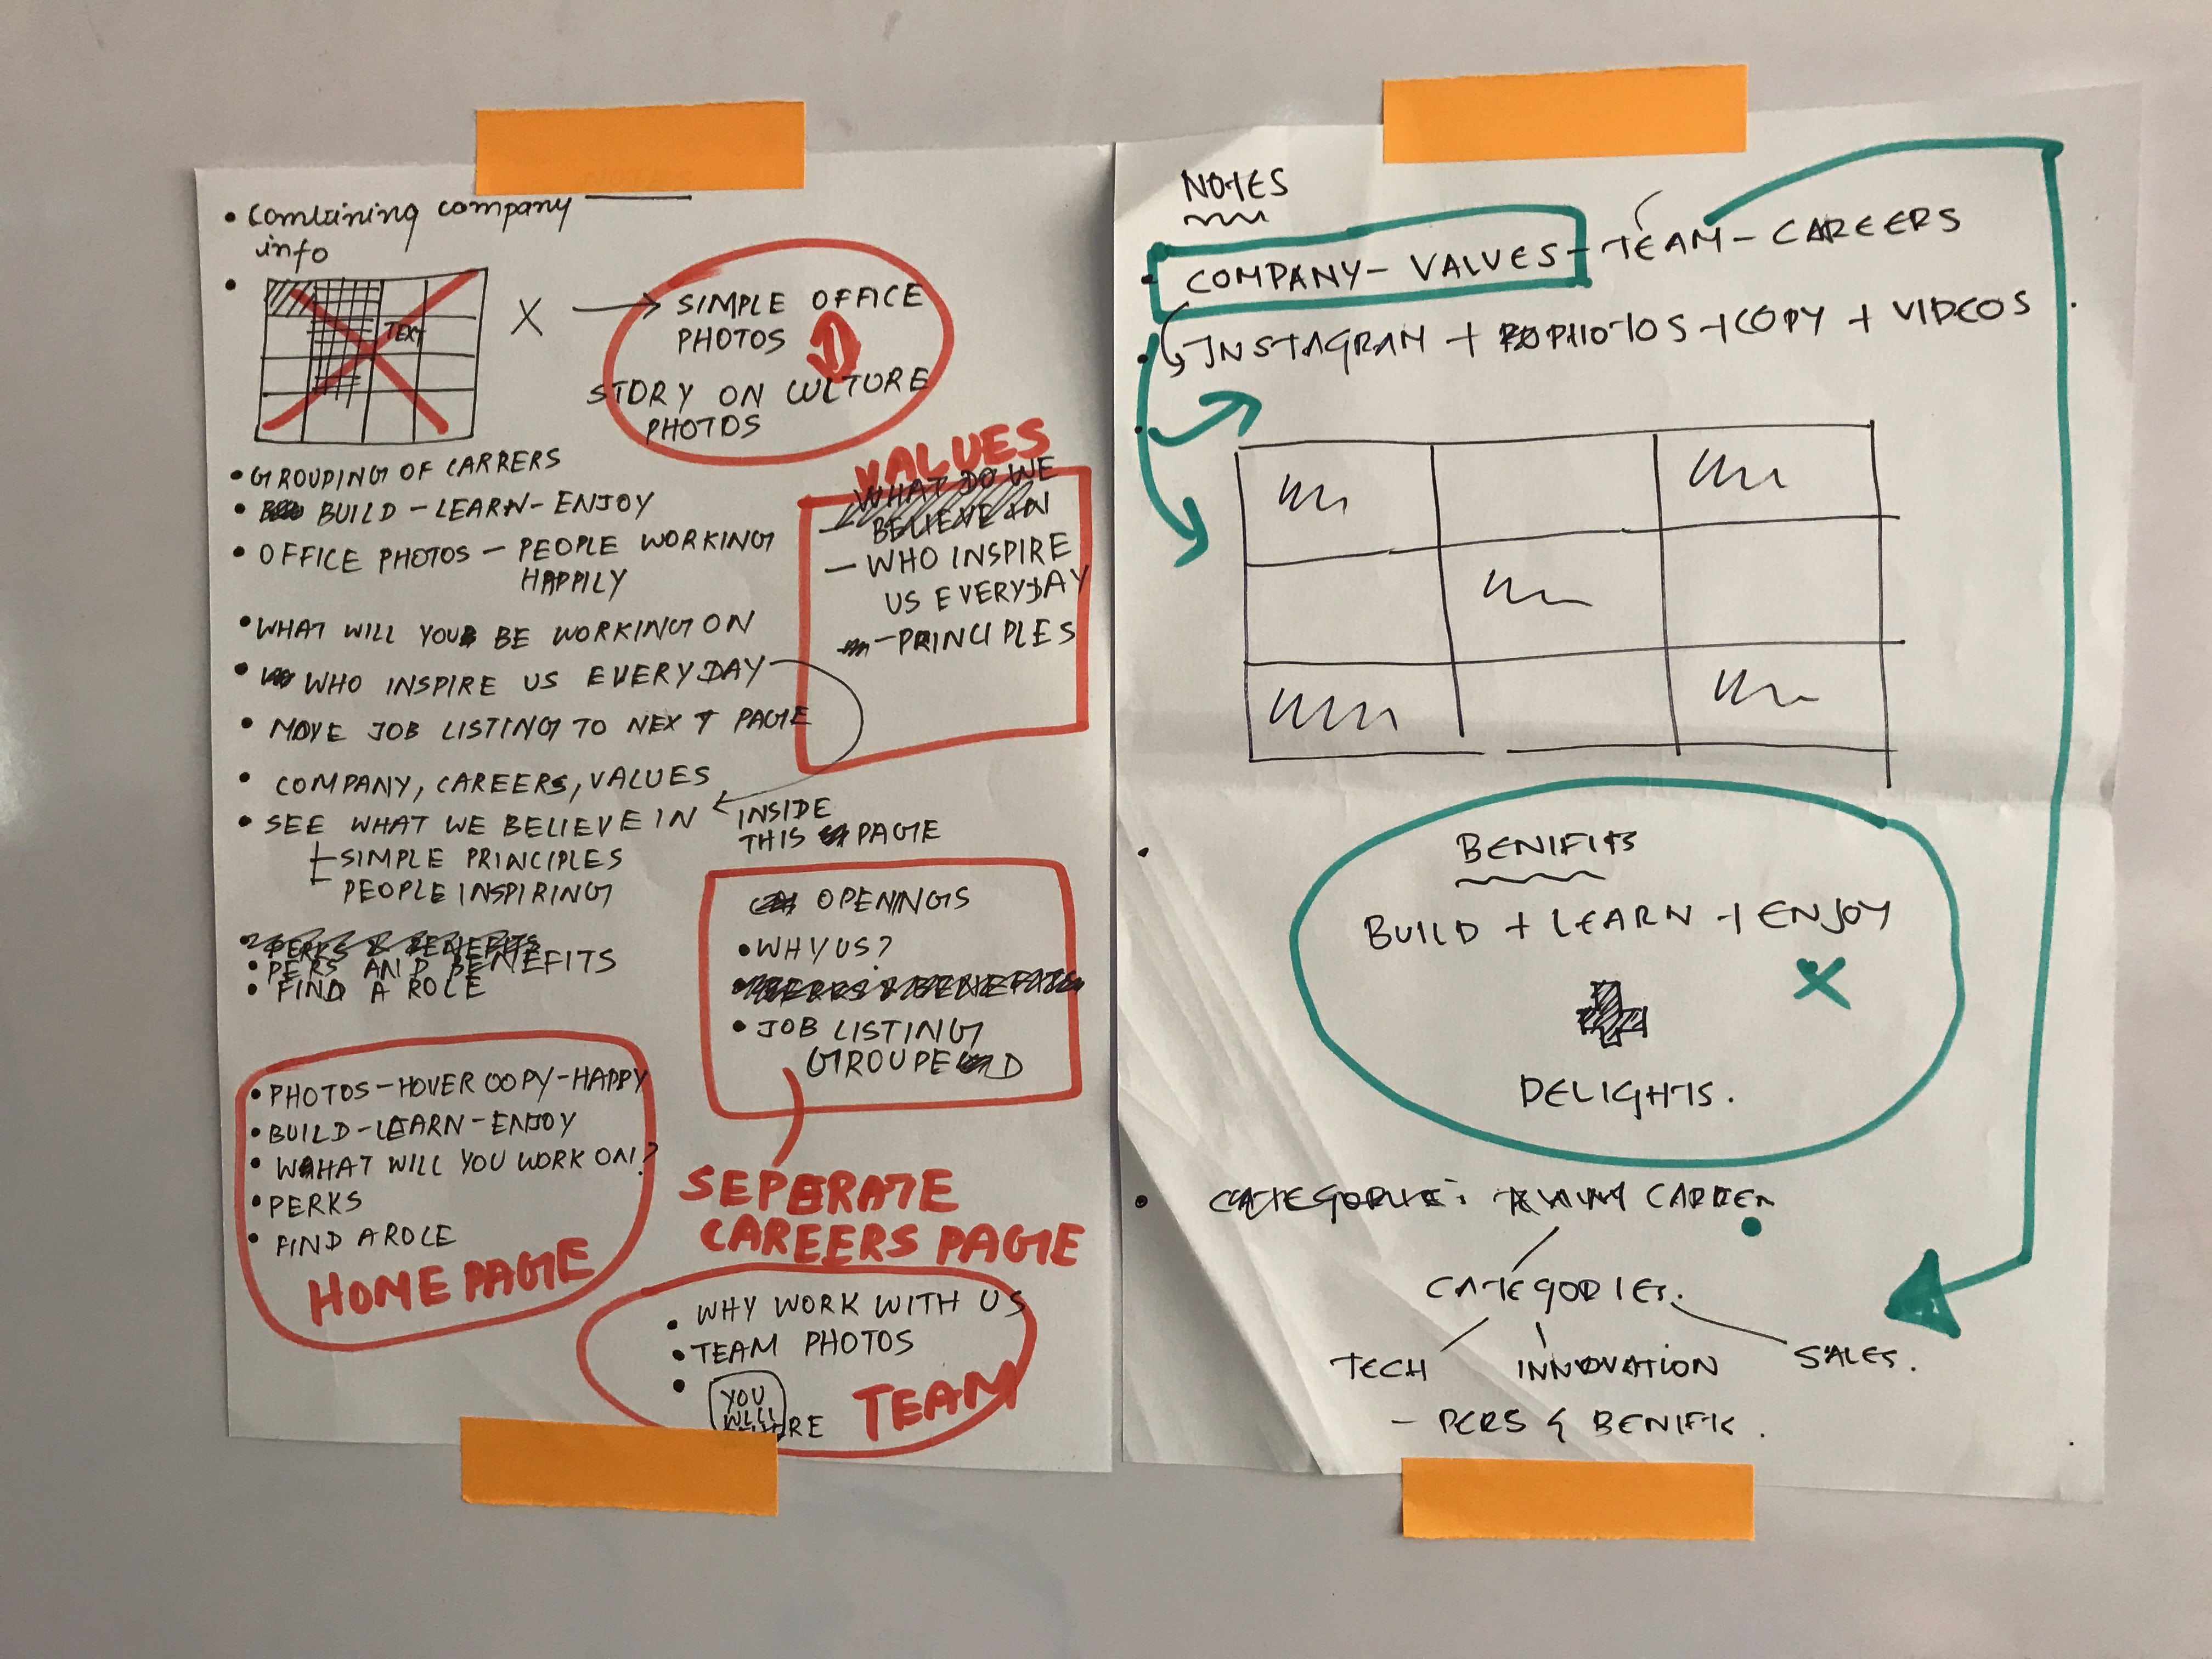 NOTES
• Combining company
info
TEXT
X → SIMPLE OFFICE
PHOTOS
STORY ON CULTURE
PHOTOS
• GROUPING OF CARRERS
• BUILD - LEARN - ENJOY
• OFFICE PHOTOS - PEOPLE WORKING
HAPPILY
• WHAT WILL YOU BE WORKING ON
• WHO INSPIRE US EVERYDAY
• MOVE JOB LISTING TO NEXT PAGE
• COMPANY, CAREERS, VALUES
• SEE WHAT WE BELIEVE IN ← INSIDE
THIS PAGE
- SIMPLE PRINCIPLES
- PEOPLE INSPIRING
• PERKS & BENEFITS
• PERS AND BENEFITS
• FIND A ROLE
VALUES
- WHAT DO WE
BELIEVE IN
- WHO INSPIRE
US EVERYDAY
- PRINCIPLES
OPENINGS
• WHY US?
• PERKS & BENEFITS
• JOB LISTING
GROUPED
SEPERATE
CAREERS PAGE
• PHOTOS - HOVER COPY - HAPPY
• BUILD - LEARN - ENJOY
• WHAT WILL YOU WORK ON?
• PERKS
• FIND A ROLE
HOME PAGE
• WHY WORK WITH US
• TEAM PHOTOS
• YOU
WILL
TEAM
NOTES
• COMPANY - VALUES - TEAM - CAREERS
• INSTAGRAM + PHOTOS + COPY + VIDEOS
• BENIFITS
BUILD + LEARN + ENJOY
X
DELIGHTS.
• CATEGORIE:
CATEGORIES.
TECH INNOVATION SALES.
- PERS & BENIFIS.